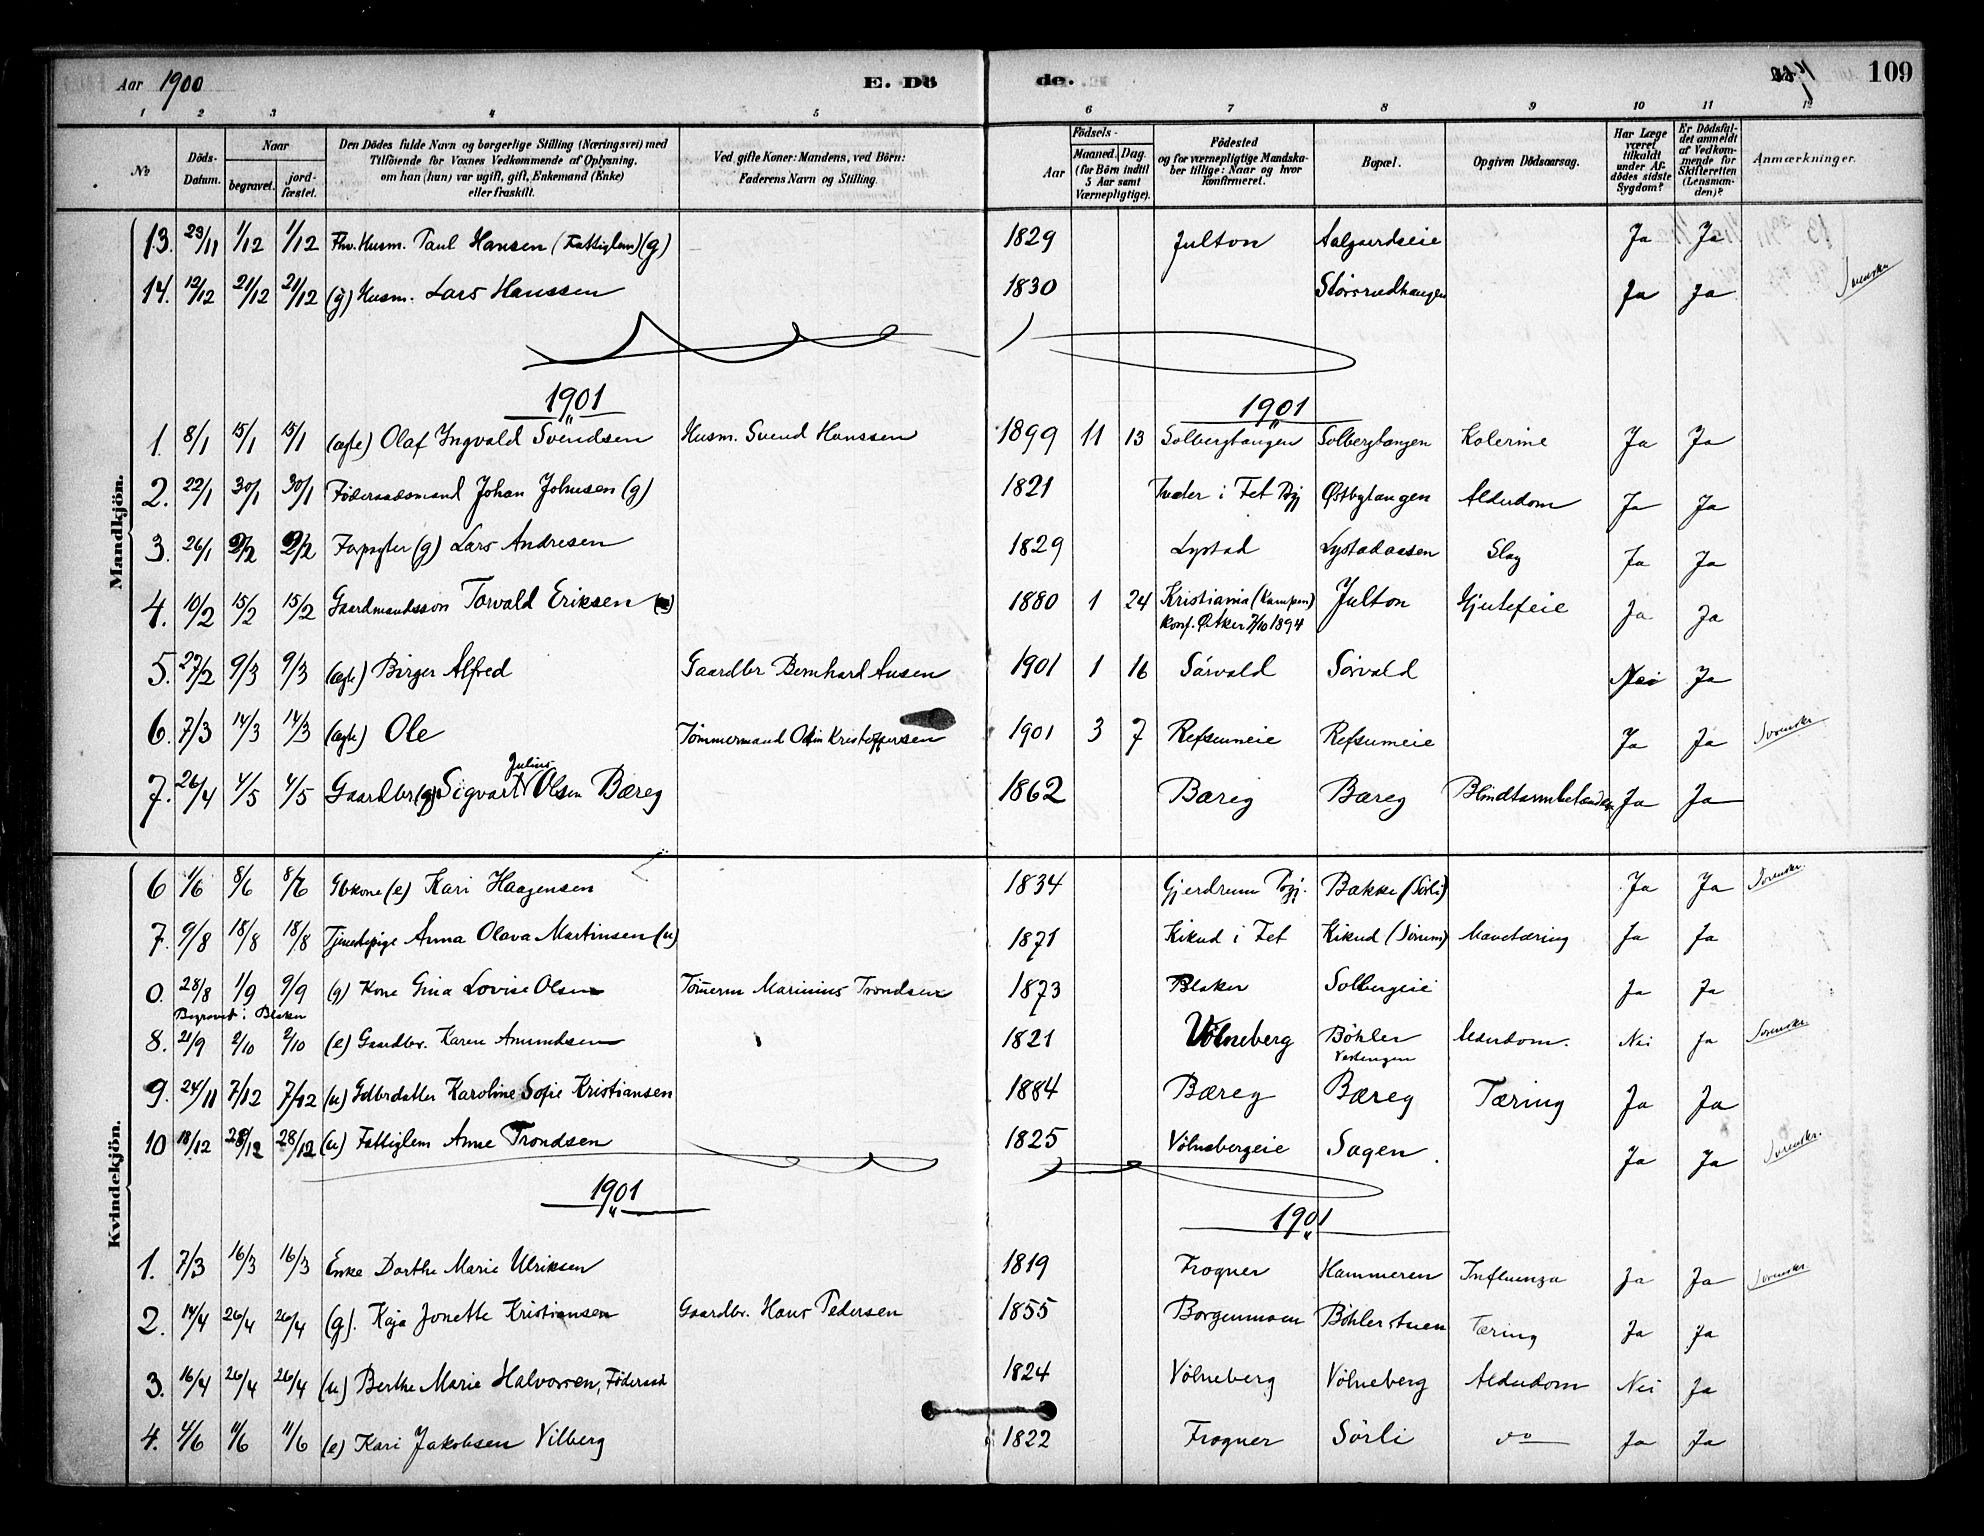 Aar 1900 E. Dö de. 109
1 2 3 4 5 6 7 8 9 10 11 12
№ Döds-Datum. Naar begravet. jordfæstet. Den Dödes fulde Navn og borgerlige Stilling (Næringsvei) med Tilföiende for Voxnes Vedkommende af Oplysning, om han (hun) var ugift, gift, Enkemand (Enke) eller fraskilt. Ved gifte Koner: Mandens, ved Börn: Faderens Navn og Stilling. Födsels- Aar Maaned. Dag. (for Börn indtil 5 Aar samt Værnepligtige). Födested og for værnepligtige Mandskaber tillige: Naar og hvor konfirmeret. Bopæl. Opgiven Dödsaarsag. Har Læge været tilkaldt under Afdödes sidste Sygdom? Er Dödsfaldet anmeldt af Vedkommende for Skifteretten (Lensmanden)? Anmærkninger.
Mandkjön.
13. 23/11 1/12 1/12 Fhv. Husm. Paul Hansen (Fattiglem) (g) 1829 Julton Aalgaardseie Ja Ja
14. 12/12 21/12 21/12 (g) Husm. Lars Hanssen 1830 Ja Ja
1901 1901
1. 8/1 15/1 15/1 (ægte) Olaf Ingvald Svendsen Husm. Svend Hanssen 1899 11 13 Solbergtangen Solbergtangen Kolerine Ja Ja
2. 22/1 30/1 30/1 Föderaadsmand Johan Johnsen (g) 1821 i Fet Pgj Østbytangen Alderdom Ja Ja
3. 26/1 2/2 2/2 (g) Lars Andresen 1829 Lystad Lystadaasen Slag Ja Ja
4. 10/2 15/2 15/2 Gaardmandssön Torvald Eriksen 1880 1 24 Kristiania (Kampen) Julton Gjutefeie Ja Ja
Konf. Østker 7/10 1894
5. 27/2 9/3 9/3 (ægte) Birger Alfred Gaardbr Bernhard Ansen 1901 1 16 Sörvald Sörvald Nei Ja
6. 7/3 14/3 14/3 (ægte) Ole Tömmermand Kristoffersen 1901 3 7 Refsumeie Refsumeie Ja Ja
7. 26/4 4/5 4/5 Gaardbr (g) Sigvart Julius Olsen Bæreg 1862 Bæreg Bæreg Blindtarmbetændelse Ja Ja
Kvindekjön.
6 1/6 8/6 8/6 Gbkone (e) Kari Haagensen 1834 Gjerdrum Pgj. Bakke (Sörli) Ja Ja
7. 9/8 18/8 18/8 Tjenestepige Anna Olava Martinsen (u) 1871 Kikud i Fet Kikud (Sörum) Mavetæring Ja Ja
0. 28/8 1/9 9/9 (g) Kone Gina Lovise Olsen Tömerm Marinius Trondsen 1873 Blaker Solbergeie Ja Ja
Begravet i Blaker
8. 21/9 2/10 2/10 (e) Gaardbr. Karen Amundsen 1821 Völneberg Böhler Alderdom. Nei Ja
9. 24/11 7/12 7/12 (u) Gdbrdatter Karoline Sofie Kristiansen 1884 Bæreg Bæreg Tæring Ja Ja
10 18/12 28/12 28/12 (u) Fattiglem Anne Trondsen 1825 Völnebergeie Sagen. Ja Ja
1901 1901
1. 7/3 16/3 16/3 Enke Dorthe Marie Ulriksen 1819 Frogner Hammeren Influenza Ja Ja
2. 14/4 26/4 26/4 (g). Kaja Jonette Kristiansen Gaardbr. Hans Pedersen 1855 Borgenmoen Böhlerstuen Tæring Ja Ja
3. 16/4 26/4 26/4 (u) Berthe Marie Halvorsen, Föderaad 1824 Völneberg Völneberg Alderdom Nei Ja
4. 4/6 11/6 11/6 (e) Kari Jakobsen Vilberg 1822 Frogner Sörli do Ja Ja